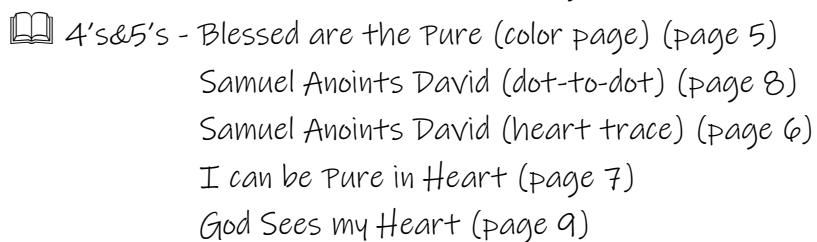 4's&5's - Blessed are the Pure (color page) (page 5)
Samuel Anoints David (dot-to-dot) (page 8)
Samuel Anoints David (heart trace) (page 6)
I can be Pure in Heart (page 7)
God Sees my Heart (page 9)